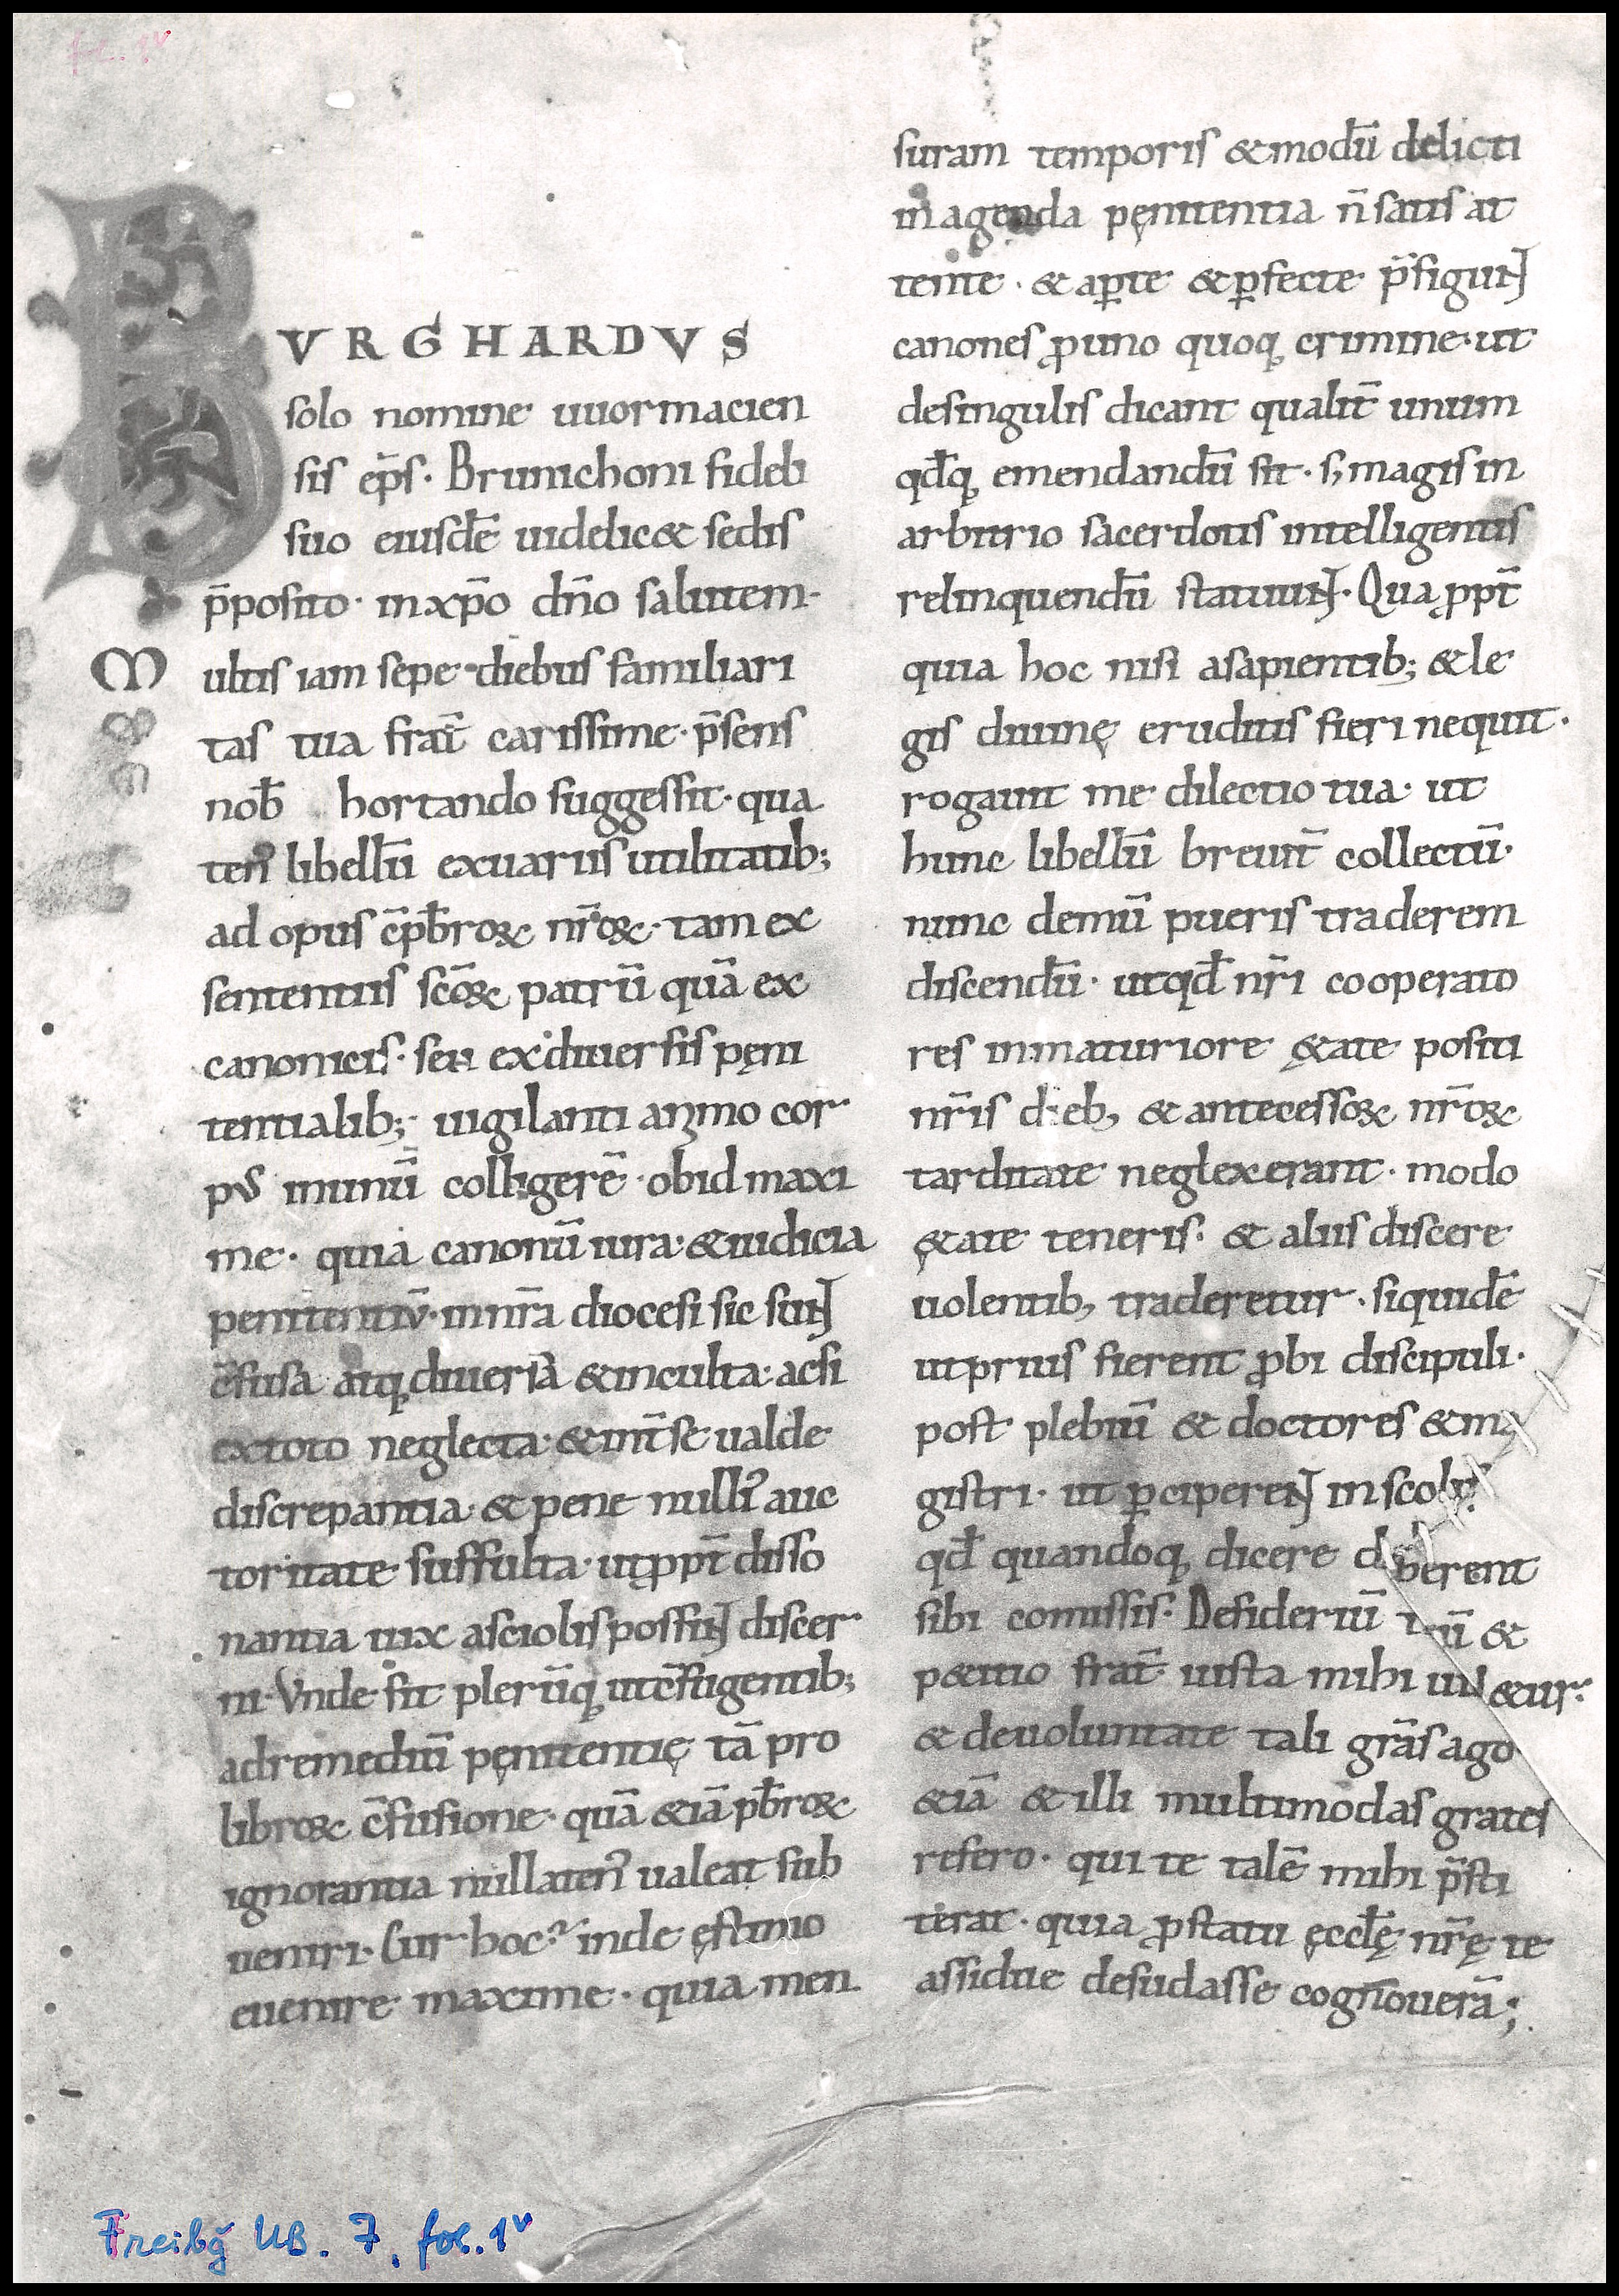 fol. 1v
BVRGHARDVS
solo nomine uuormacien
sis ep̄s. Brunichoni fideli
suo eiusdē uidelic& sedis
p̄posito· in xp̄o dn̄o salutem·
Multis iam sepe diebus familiari
tas tua frat̄ carissime· p̄sens
nob̄ hortando suggessit· qua
ten᾽ libellū ex uariis utilitatib;
ad opus c̄pb̄roꝝ nr̄oꝝ· tam ex
sententiis sc̄oꝝ patrū quā ex
canonicis· seu ex diuersis pęni
tentialib;· uigilanti animo cor
p᾽ in unū colligerē· ob id maxi
me· quia canonū iura· & iudicia
penitentiū· in nr̄a diocesi sic sunt
c̄fusa atq; diuersa & inculta· acsi
ex toto neglecta· & int̄ se ualde
discrepantia· & pene nulli᾽ auc
toritate suffulta· ut ꝓpt̄ disso
nantia uix a sciolis possunt discer
ni· Vnde fit plerūq; ut c̄fugentib;
ad remediū pęnitentię tā pro
libroꝝ c̄fusione· quā &iā pb̄roꝝ
ignorantia nullaten᾽ ualeat sub
ueniri· Cur hoc? inde ęstimo
euenire maxime· quia men
suram temporis & modū delicti
in agenda pęnitentia n̄ satis at
tente· & aꝑte & ꝑfecte p̄figunt
canones ꝓ uno quoq; crimine· ut
de singulis dicant qualit̄ unum
qd̄q; emendandū sit· s; magis in
arbitrio sacerdotis intelligentis
relinquendū statuunt· Qua ꝓpt̄
quia hoc nisi a sapientib; & le
gis diuinę eruditis fieri nequit·
rogauit me dilectio tua· ut
hunc libellū breuit̄ collectū·
nunc demū pueris traderem
discendū· ut qd̄ nr̄i cooperato
res in maturiore ę&ate positi
nr̄is dieb; & antecessoꝝ nr̄oꝝ
tarditate neglexerant· modo
ę&ate teneris· & aliis discere
uolentib; traderetur· siquidē
ut prius fierent ꝓbi discipuli·
post plebiū & doctores & ma
gistri· ut ꝑciperent in scolis
qd̄ quandoq; dicere deberent
sibi comissis· Desideriū tuū &
p&itio frat̄ iusta mihi uid&ur·
& de uoluntate tali grās ago
&iā & illi multimodas grates
refero· qui te talē mihi p̄sti
terat· quia ꝓ statu ęccl̄ę nr̄ę te
assidue desudasse cognouerā;
Freibg UB. 7, fol. 1v